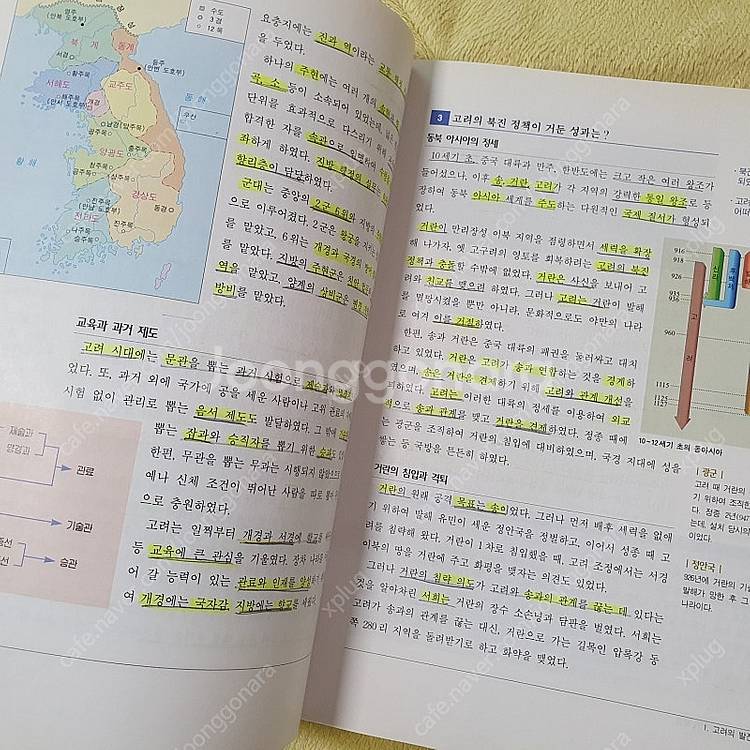 수도
3경
12목
영주
(안북 도호부)
북계
동계
서경
등주
(안변 도호부)
황주목
서해도
교주도
해주목
(안서 도호부)
개경
동해
우산
남경(양주목)
광주목
양광도
충주목
청주목
황해
공주목
상주목
전주목
경상도
진주목
동경
전라도
나주목
승주목
요충지에는 진과 역이라는
을 두었다.
하나의 주현에는 여러 개의
곡, 소 등이 소속되어 있었는데,
단위를 효과적으로 다스리기
합격한 자를 속과으로 임명하여
좌하게 하였다. 지방 행정의
향리층이 담당하였다.
군대는 중앙의 2군 6위와 지방의
으로 이루어졌다. 2군은 왕궁을
를 맡았고, 6위는 개경과 국경의
를 맡았다. 지방의 주현군은 치안
역을 맡았고, 양계의 상비군은
방비를 맡았다.
교육과 과거 제도
고려 시대에는 문관을 뽑는 과거 시험으로 제술과와
있다. 또, 과거 외에 국가에 공을 세운 사람이나 고위 관료의
시험 없이 관리로 뽑는 음서 제도도 발달하였다. 그 밖에
뽑는 잡과와 승직자를 뽑기 위한 승과도
한편, 무관을 뽑는 무과는 시행되지 않았으므로
예나 신체 조건이 뛰어난 사람을 따로 뽑아
으로 충원하였다.
고려는 일찍부터 개경과 서경에 학교를
등 교육에 큰 관심을 기울였다. 장차 나라를
어 갈 능력이 있는 관료와 인재를 양성하기
여 개경에는 국자감, 지방에는 향교를
제술과
명경과
관료
기술관
승관
3 고려의 북진 정책이 거둔 성과는?
동북 아시아의 정세
10세기 초, 중국 대륙과 만주, 한반도에는 크고 작은 여러 왕조가
들어섰으나, 이후 송, 거란, 고려가 각 지역의 강력한 통일 왕조로 등
장하여 동북 아시아 세계를 주도하는 다원적인 국제 질서가 형성되
었다.
거란이 만리장성 이북 지역을 점령하면서 세력을 확장
해 나가자, 옛 고구려의 영토를 회복하려는 고려의 북진
정책과 충돌할 수밖에 없었다. 거란은 사신을 보내어 고
려와 친교를 맺으려 하였다. 그러나 고려는 거란이 발해
를 멸망시켰을 뿐만 아니라, 문화적으로도 야만의 나라
로 여겨 이를 거절하였다.
한편, 송과 거란은 중국 대륙의 패권을 둘러싸고 대치
하고 있었다. 거란은 고려가 송과 연합하는 것을 경계하
였으며, 송은 거란을 견제하기 위해 고려와 관계 개선을
꾀하였다. 고려는 이러한 대륙의 정세를 이용하여 외교
적으로 송과 관계를 맺고 거란을 견제하였다. 정종 때에
는 광군을 조직하여 거란의 침입에 대비하였으며, 국경 지대에 성을
쌓는 등 국방을 튼튼히 하였다.
916
918
926
935
936
960
1115
1125
1126
1127
고
려
후백제
10~12세기 초의 동아시아
거란의 침입과 격퇴
거란의 원래 공격 목표는 송이었다. 그러나 먼저 배후 세력을 없애
기 위하여 발해 유민이 세운 정안국을 정벌하고, 이어서 성종 때 고
려를 침략해 왔다. 거란이 1차로 침입했을 때, 고려 조정에서는 서경
이북의 땅을 거란에 주고 화평을 맺자는 의견도 있었다.
그러나 거란의 침략 의도가 고려와 송과의 관계를 끊는 데 있다는
것을 알아차린 서희는 거란의 장수 소손녕과 담판을 벌였다. 서희는
고려가 송과의 관계를 끊는 대신, 거란으로 가는 길목인 압록강 동
쪽 280리 지역을 돌려받기로 하고 화약을 맺었다.
광군
고려 때 거란의
기 위하여 조직한
다. 정종 2년(947
는데, 설치 당시의
이었다.
정안국
926년에 거란의
발해가 망한 후 그
나라이다.
1. 고려의 발전
joonggonara
cafe.naver.com/joonggonara
xplug